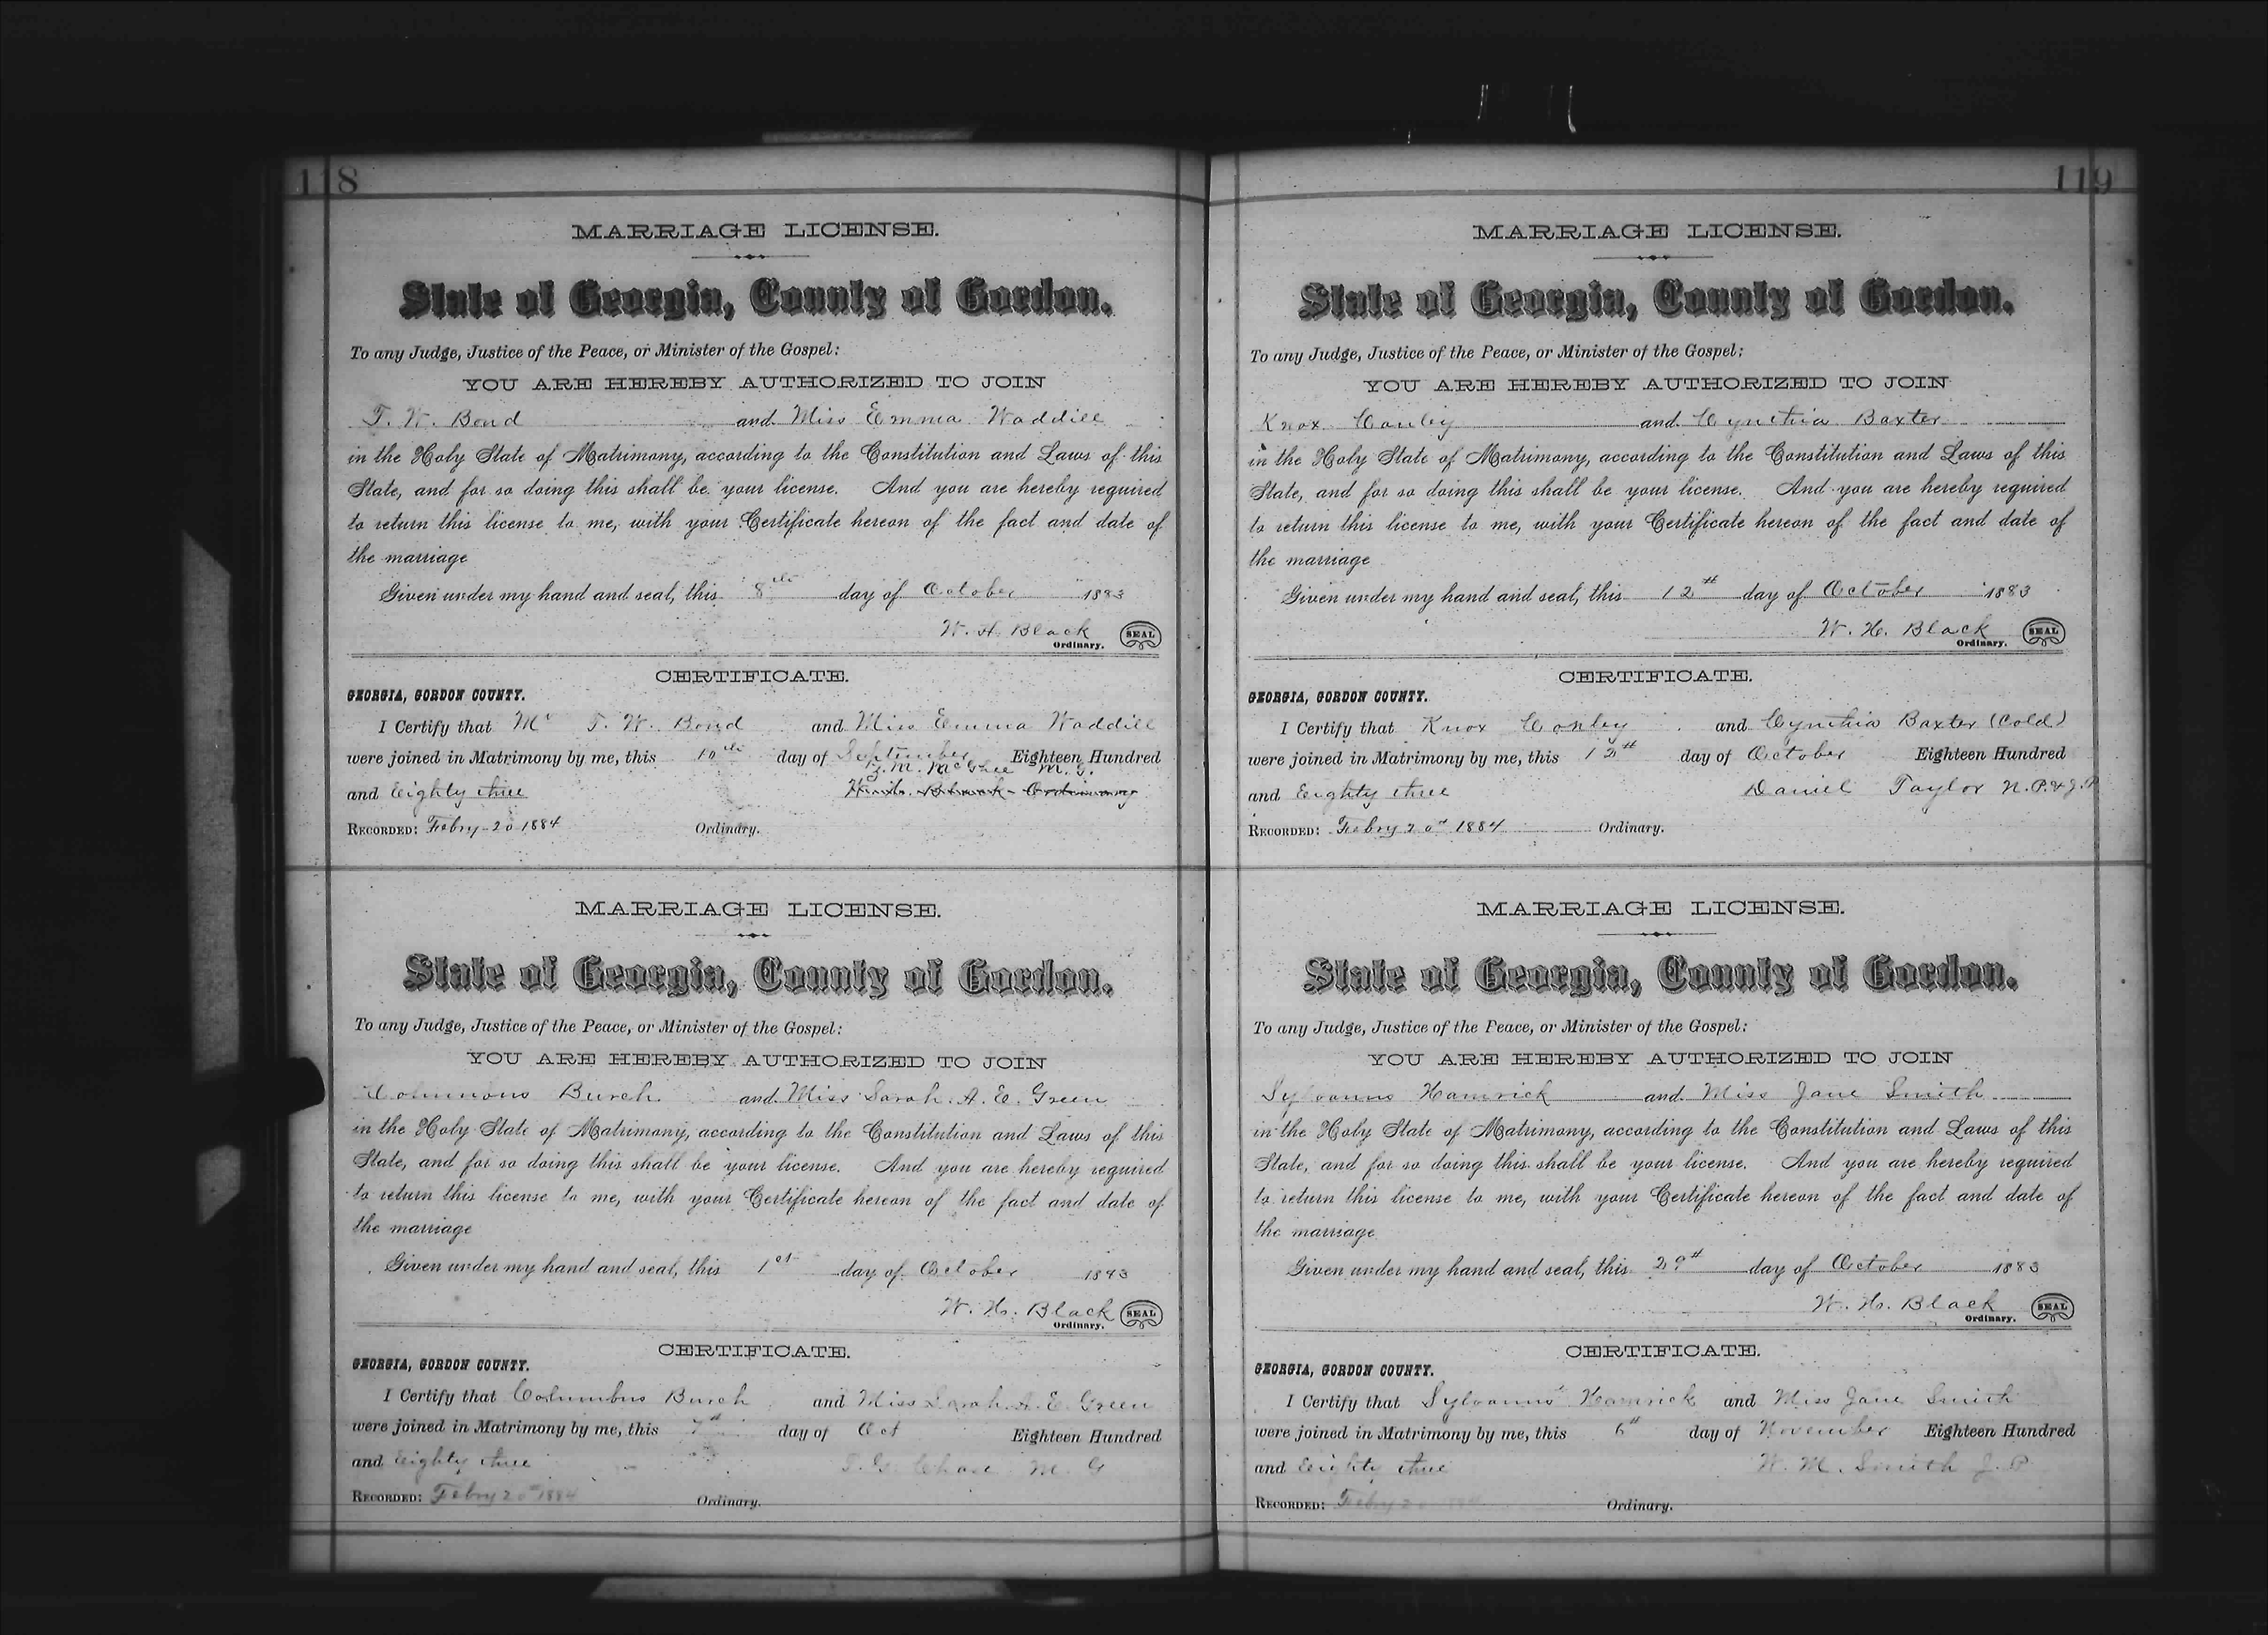 118
MARRIAGE LICENSE.
State of Georgia, County of Gordon.
To any Judge, Justice of the Peace, or Minister of the Gospel:
YOU ARE HEREBY AUTHORIZED TO JOIN
T. W. Bond and Miss Emma Waddill
in the Holy State of Matrimony, according to the Constitution and Laws of this
State, and for so doing this shall be your license. And you are hereby required
to return this license to me, with your Certificate hereon of the fact and date of
the marriage
Given under my hand and seal, this 8th day of October 1883
W. H. Black SEAL
Ordinary.
CERTIFICATE.
GEORGIA, GORDON COUNTY.
I Certify that Mr T. W. Bond and Miss Emma Waddill
were joined in Matrimony by me, this 10th day of September Eighteen Hundred
McGhee M. G.
and Eighty three Ordinary
RECORDED: Febry-20 1884 Ordinary.
MARRIAGE LICENSE.
State of Georgia, County of Gordon.
To any Judge, Justice of the Peace, or Minister of the Gospel:
YOU ARE HEREBY AUTHORIZED TO JOIN
Burch and Miss Sarah. A. E. Green
in the Holy State of Matrimony, according to the Constitution and Laws of this
State, and for so doing this shall be your license. And you are hereby required
to return this license to me, with your Certificate hereon of the fact and date of
the marriage
Given under my hand and seal, this 1st day of October 1883
W. H. Black SEAL
Ordinary.
CERTIFICATE.
GEORGIA, GORDON COUNTY.
I Certify that Columbus Burch and Miss Sarah. A. E. Green
were joined in Matrimony by me, this 7th day of Oct Eighteen Hundred
and Eighty three T. G. Chase M. G
RECORDED: Febry 20th 1884 Ordinary.
119
MARRIAGE LICENSE.
State of Georgia, County of Gordon.
To any Judge, Justice of the Peace, or Minister of the Gospel:
YOU ARE HEREBY AUTHORIZED TO JOIN
Knox Conley and Cynthia Baxter
in the Holy State of Matrimony, according to the Constitution and Laws of this
State, and for so doing this shall be your license. And you are hereby required
to return this license to me, with your Certificate hereon of the fact and date of
the marriage
Given under my hand and seal, this 12th day of October 1883
W. H. Black SEAL
Ordinary.
CERTIFICATE.
GEORGIA, GORDON COUNTY.
I Certify that Knox Conley and Cynthia Baxter (Cold)
were joined in Matrimony by me, this 12th day of October Eighteen Hundred
and Eighty three Daniel Taylor N.P.&J.P
RECORDED: Febry 20th 1884 Ordinary.
MARRIAGE LICENSE.
State of Georgia, County of Gordon.
To any Judge, Justice of the Peace, or Minister of the Gospel:
YOU ARE HEREBY AUTHORIZED TO JOIN
Sylvanus Hamrick and Miss Jane Smith
in the Holy State of Matrimony, according to the Constitution and Laws of this
State, and for so doing this shall be your license. And you are hereby required
to return this license to me, with your Certificate hereon of the fact and date of
the marriage
Given under my hand and seal, this 29th day of October 1883
W. H. Black SEAL
Ordinary.
CERTIFICATE.
GEORGIA, GORDON COUNTY.
I Certify that Sylvanus Hamrick and Miss Jane Smith
were joined in Matrimony by me, this 6th day of November Eighteen Hundred
and Eighty three W. M. Smith J. P
RECORDED: Febry 20 1884 Ordinary.